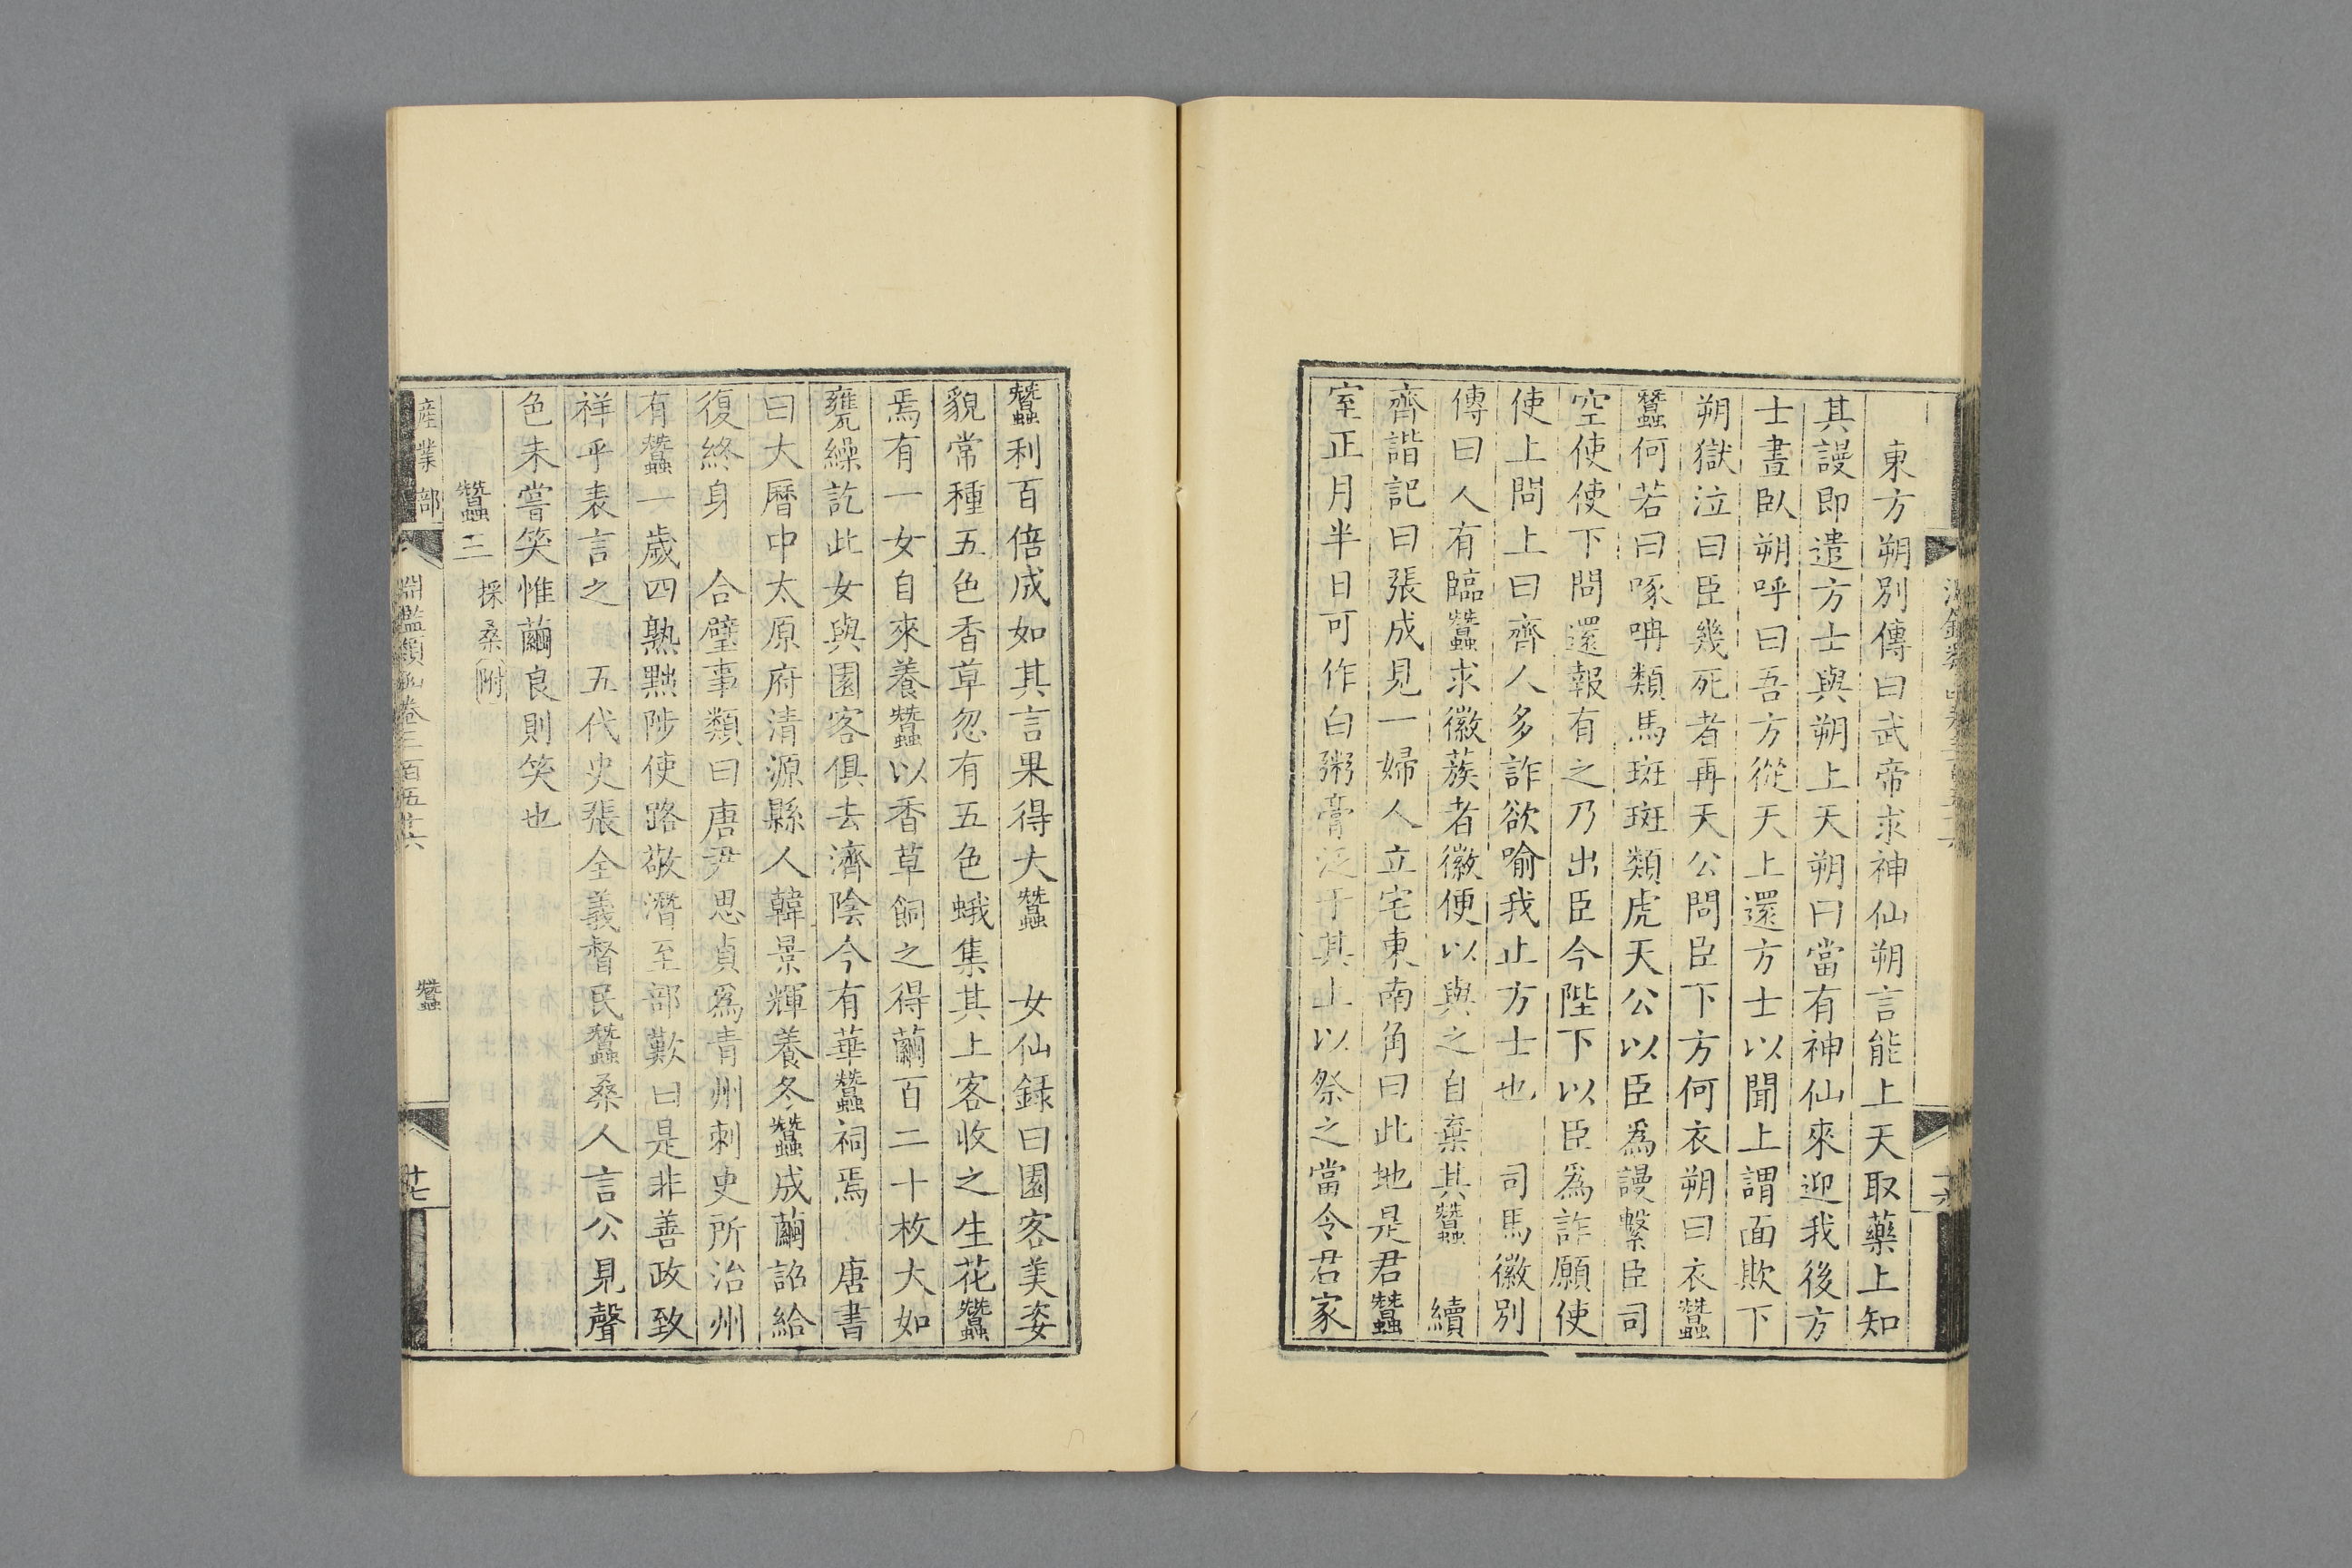 東方朔別傳曰武帝求神仙朔言能上天取藥上知
其謾即遣方士與朔上天朔曰當有神仙來迎我後方
士晝臥朔呼曰吾方從天上還方士以聞上謂面欺下
朔獄泣曰臣幾死者再天公問臣下方何衣朔曰衣蠶
蠶何若曰啄呥類馬斑斑類虎天公以臣爲謾繫臣司
空使使下問還報有之乃出臣今陛下以臣爲詐願使
使上問上曰齊人多詐欲喻我止方士也　司馬徽別
傳曰人有臨蠶求徽蔟者徽便以與之自棄其蠶　續
齊諧記曰張成見一婦人立宅東南角曰此地是君蠶
室正月半日可作白粥膏泛于其上以祭之當令君家
蠶利百倍成如其言果得大蠶　女仙録曰園客美姿
貌常種五色香草忽有五色蛾集其上客收之生花蠶
焉有一女自來養蠶以香草飼之得繭百二十枚大如
甕繰訖此女與園客俱去濟陰今有華蠶祠焉　唐書
曰大曆中太原府清源縣人韓景輝養冬蠶成繭詔給
復終身　合璧事類曰唐尹思貞爲青州刺史所治州
有蠶一歲四熟黜陟使路敬潛至部歎曰是非善政致
祥乎表言之　五代史張全義督民蠶桑人言公見聲
色未嘗笑惟繭良則笑也
蠶三 採桑附
産業部 淵鑑類函卷三百五十六 蠶 十七